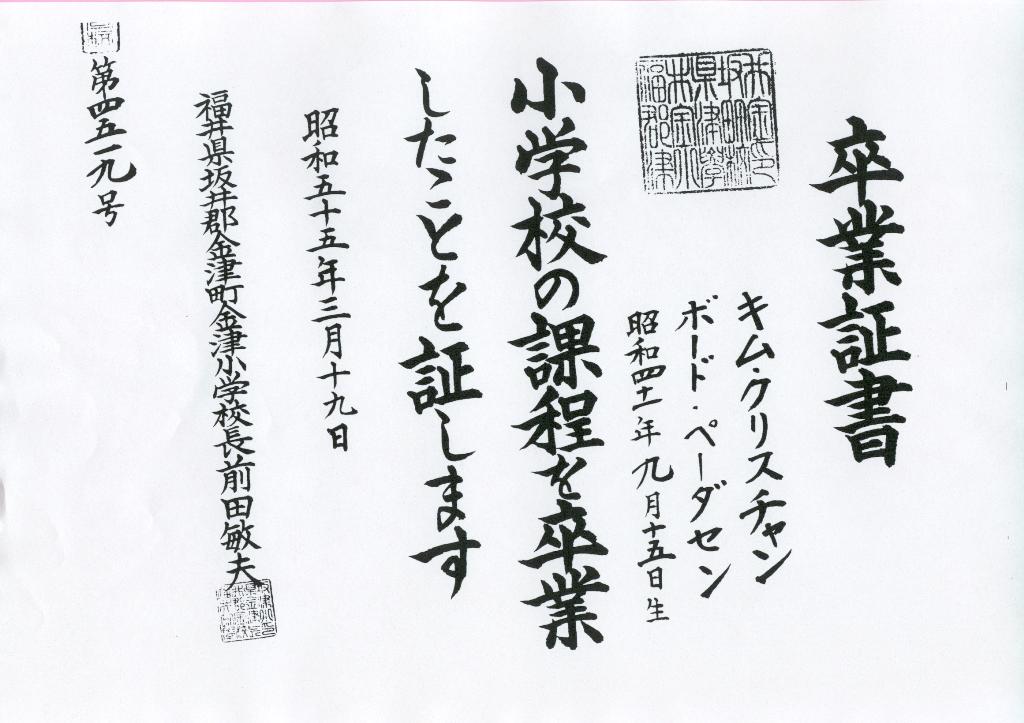 卒業証書
キム・クリスチャン
ボードト・ペーダセン
昭和四十一年九月十五日生
小学校の課程を卒業
したことを証します
昭和五十五年三月十九日
福井県坂井郡金津町金津小学校長前田敏夫
第四五一九号